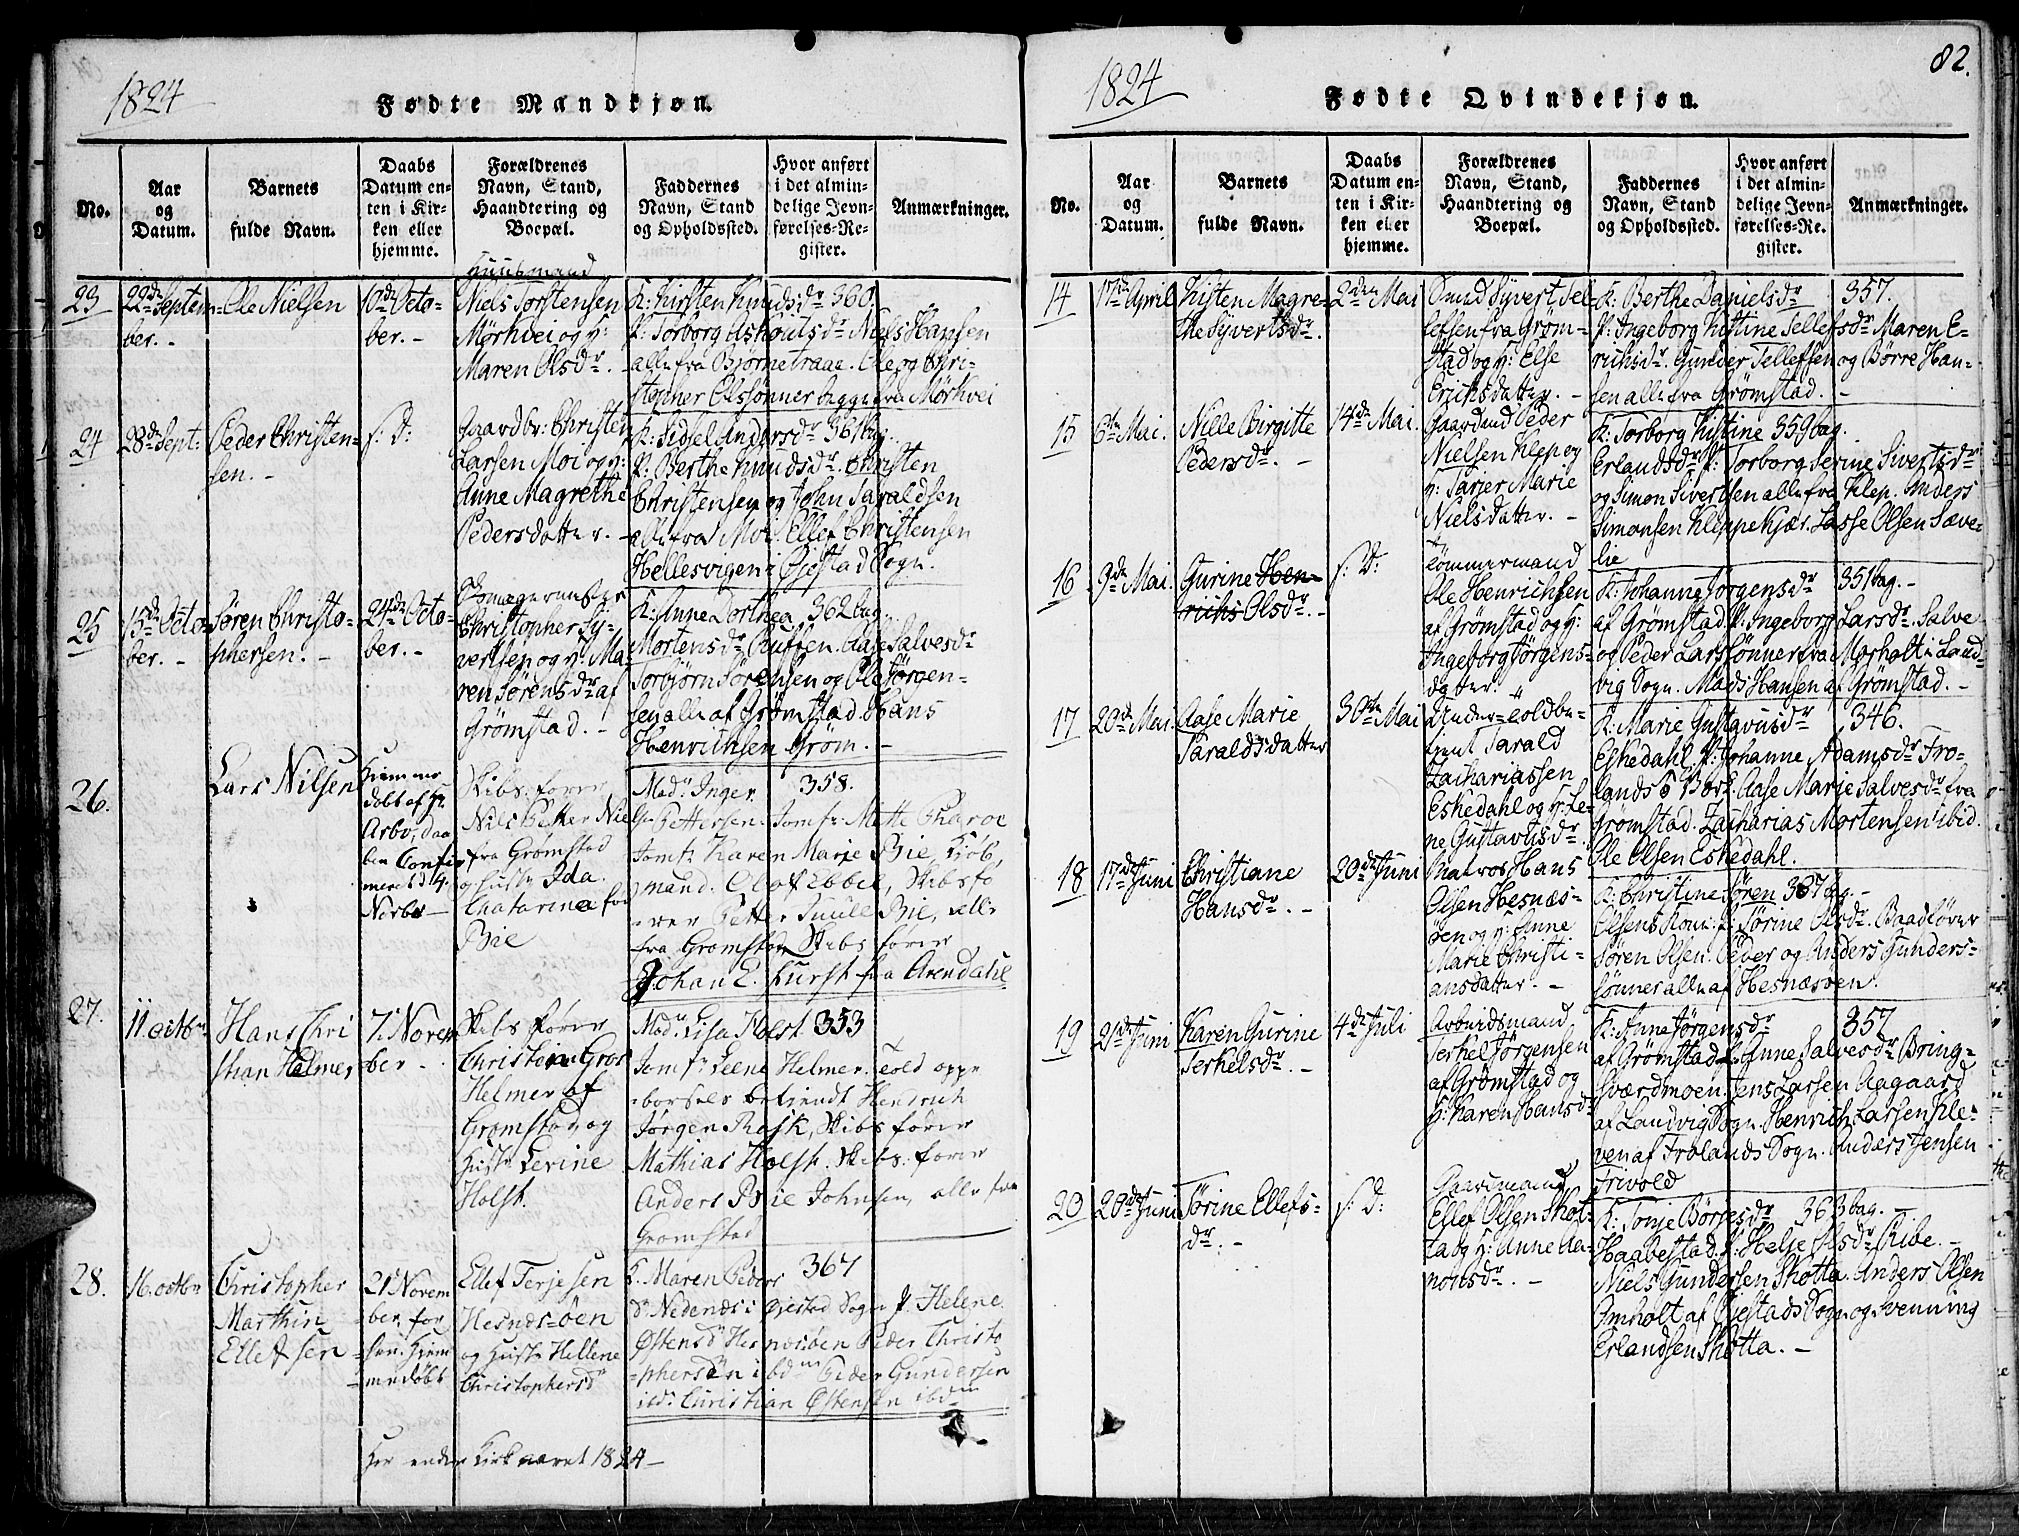 1824
Fødte Mandkjøn.
No.
Aar
og
Datum.
Barnets
fulde Navn.
Daabs
Datum en-
ten i Kir-
ken eller
hjemme.
Forældrenes
Navn, Stand,
Haandtering og
Boepæl.
Faddernes
Navn, Stand
og Opholdssted.
Hvor anført
i det almin-
delige Jevn-
førelses-Re-
gister.
Anmærkninger.
23
22de Septem-
ber. -
Ole Nielsen
10de Octo-
ber. -
Huusmand
Niels Torstensen
Mørkvei og h:
Maren Olsdr. -
K: Kirsten Knudsdr 360.
P: Torborg Aslioutsdr Niels Hansen
alle fra Bjørnetraae. Ole og Chri-
stopher Olssønner begge fra Mørkvei
24
28de Sept:
Peder Christen-
sen. -
s: D:
Gaardbr: Christen
Larsen Moi og h:
Anne Magrethe
Pedersdatter. -
K: Sidsel Andersdr 361 bag.
P: Berthe Knudsdr. Christen
Christensen og Johan Taraldsen
alle fra Moi. Ellef Christensen
Hellesvigen i Øjestad Sogn.
25
15de Octo-
ber. -
Søren Christo-
phersen. -
24de Octo-
ber. -
Christopher Sy-
vertsen og h: Ma-
ren Sørensdr af
Grømstad. -
K: Anne Dorthea 362 bag.
Mortensdr Aase Salvesdr
Torbjørn Sørensen og Ole Jørgen-
sen alle af Grømstad. Hans
Henrichsen Grøm. -
26.
Lars Nilsen
Hiemme
døbt af Hr.
Arbo, daa-
ben Confir
meret d 14.
Novbr -
Skibsfører
Nils Petter Nie
fra Grømstad
og Hustr Ida
Catarina fød
Bie
Madm Inger 358.
G: Pettersen. Jomfr Mette Pharoe
Jomfr Karen Marie Bie, Kiøb,
mand. Olof Ebbel, Skibsfø
rer Petter Juule Bie, alle
fra Grømstad Skibsfører
Johan E. Kursk fra Arendahl
27.
11. octbr
Hans Chri
stian Helmer
7. Novem
ber -
Skibsfører
Christian Gros
Helmer af
Grømstad og
Hustr Sevine
Holst.
Madm Lisa Holst 353
Jomfr Leene Helmer. told oppe
børsels betient Hendrich
Jørgen Rask, Skibsfører
Mathias Holst. Skibsfører
Anders Bie Johnsen, alle fra
Gromstad
28.
16. octbr
Christopher
Marthin
Ellefsen
21 Novem
ber, for
hen Hiem
medøbt
Ellef Terjesen
Hesnæsøen
og Hustr Hellene
Christophersdr
K. Maren Peders 367
dr Nedenæs i Øiestad Sogn P. Helene
Østensdr Hesnæsøen Peder Christo
phersen ibdm Peder Gundersen
ibd: Christian Østensen ibdm
Her ender Kirkaaret 1824 -
82.
1824
Fødte Qvindekjøn.
No.
Aar
og
Datum.
Barnets
fulde Navn.
Daabs
Datum en-
ten i Kir-
ken eller
hjemme.
Forældrenes
Navn, Stand,
Haandtering og
Boepæl.
Faddernes
Navn, Stand
og Opholdssted.
Hvor anført
i det almin-
delige Jevn-
førelses-Re-
gister.
Anmærkninger.
14
17de April
Kisten Magre-
the Syvertsdr.
2den Mai
Smed Syvert Tel-
lefsen fra Grøm-
stad og h: Else
Erichsdatter. -
K: Berthe Danielsdr 357.
P: Ingeborg Kistine Tellefsdr Maren E-
richsdr. Gunder Tellefsen og Børre Han-
sen alle fra Grømstad. -
15
6te Mai.
Nille Birgitte
Pedersdr. -
14de Mai.
Gaardmd Peder
Nielsen Klep og
h: Tarjer Marie
Nielsdatter. -
K: Torborg Kistine 359 bag.
Erlandsdr P: Torborg Serine Sivertsdr
og Simon Sivertsen alle fra Klep. Anders
Simonsen Kleppekjær. Lasse Olsen Sæve-
lie
16
9de Mai.
Gurine Hen-
richs Olsdr. -
s: D:
Tømmermand
Ole Henrichsen
af Grømstad og h:
Ingeborg Jørgens-
datter.
K: Johanne Jorgensdr 351 bag. -
af Grømstad P: Ingeborg Larsdr. Salve
og Peder Larssønner fra Morholt i Land-
vig Sogn. Mads Hansen af Grømstad. -
17
20de Mai.
Aase Marie
Taraldsdatter
30te Mai
Under-Toldbe-
tjent Tarald
Zachariassen
Eskedahl og h: Le-
ne Gustavusdr
K: Marie Gustavusdr 346.
Eskedahl P: Johanne Adamsdr Fro-
lands Børk. Aase Marie Salvesdr fra
Grømstad. Zacharias Mortensen ibid.
Ole Olsen Eskedahl.
18
17de Juni
Christiane
Hansdr. -
20de Juni
Matros Hans
Olsen Hesnæs-
øen og h: Anne
Marie Christi-
ansdatter. -
K: Christine Søren 367 bag. -
Olsens Kone. P: Sørine Olsdr. Baadfører
Søren Olsen. Peder og Anders Gunders-
sønner alle af Hesnæsøen.
19
21de Juni
Karen Gurine
Terkelsdr. -
4de Juli
Arbeidsmand
Terkel Jørgensen
af Grømstad og
h: Karen Hansdr
K: Anne Jørgensdr 357
af Grømstad P: Anne Salvesdr Bring-
sværdmoen. Jens Larsen Aagaard
af Landvig Sogn. Henrich Larsen Kle-
ven af Frolands Sogn. Anders Jensen
Frivold
20
20de Juni
Tørine Ellefs-
dr. -
s: D:
Gaardmand
Ellef Olsen Skot-
ta og h: Anne Aa-
nonsdr. -
K: Tonje Børjesdr 363 bag. -
Haabestad. P: Helje Olsdr Ribe. -
Niels Gundersen Skotta. Anders Olsen
Omholt af Øjestads Sogn og Svenning
Erlandsen Skotta. -